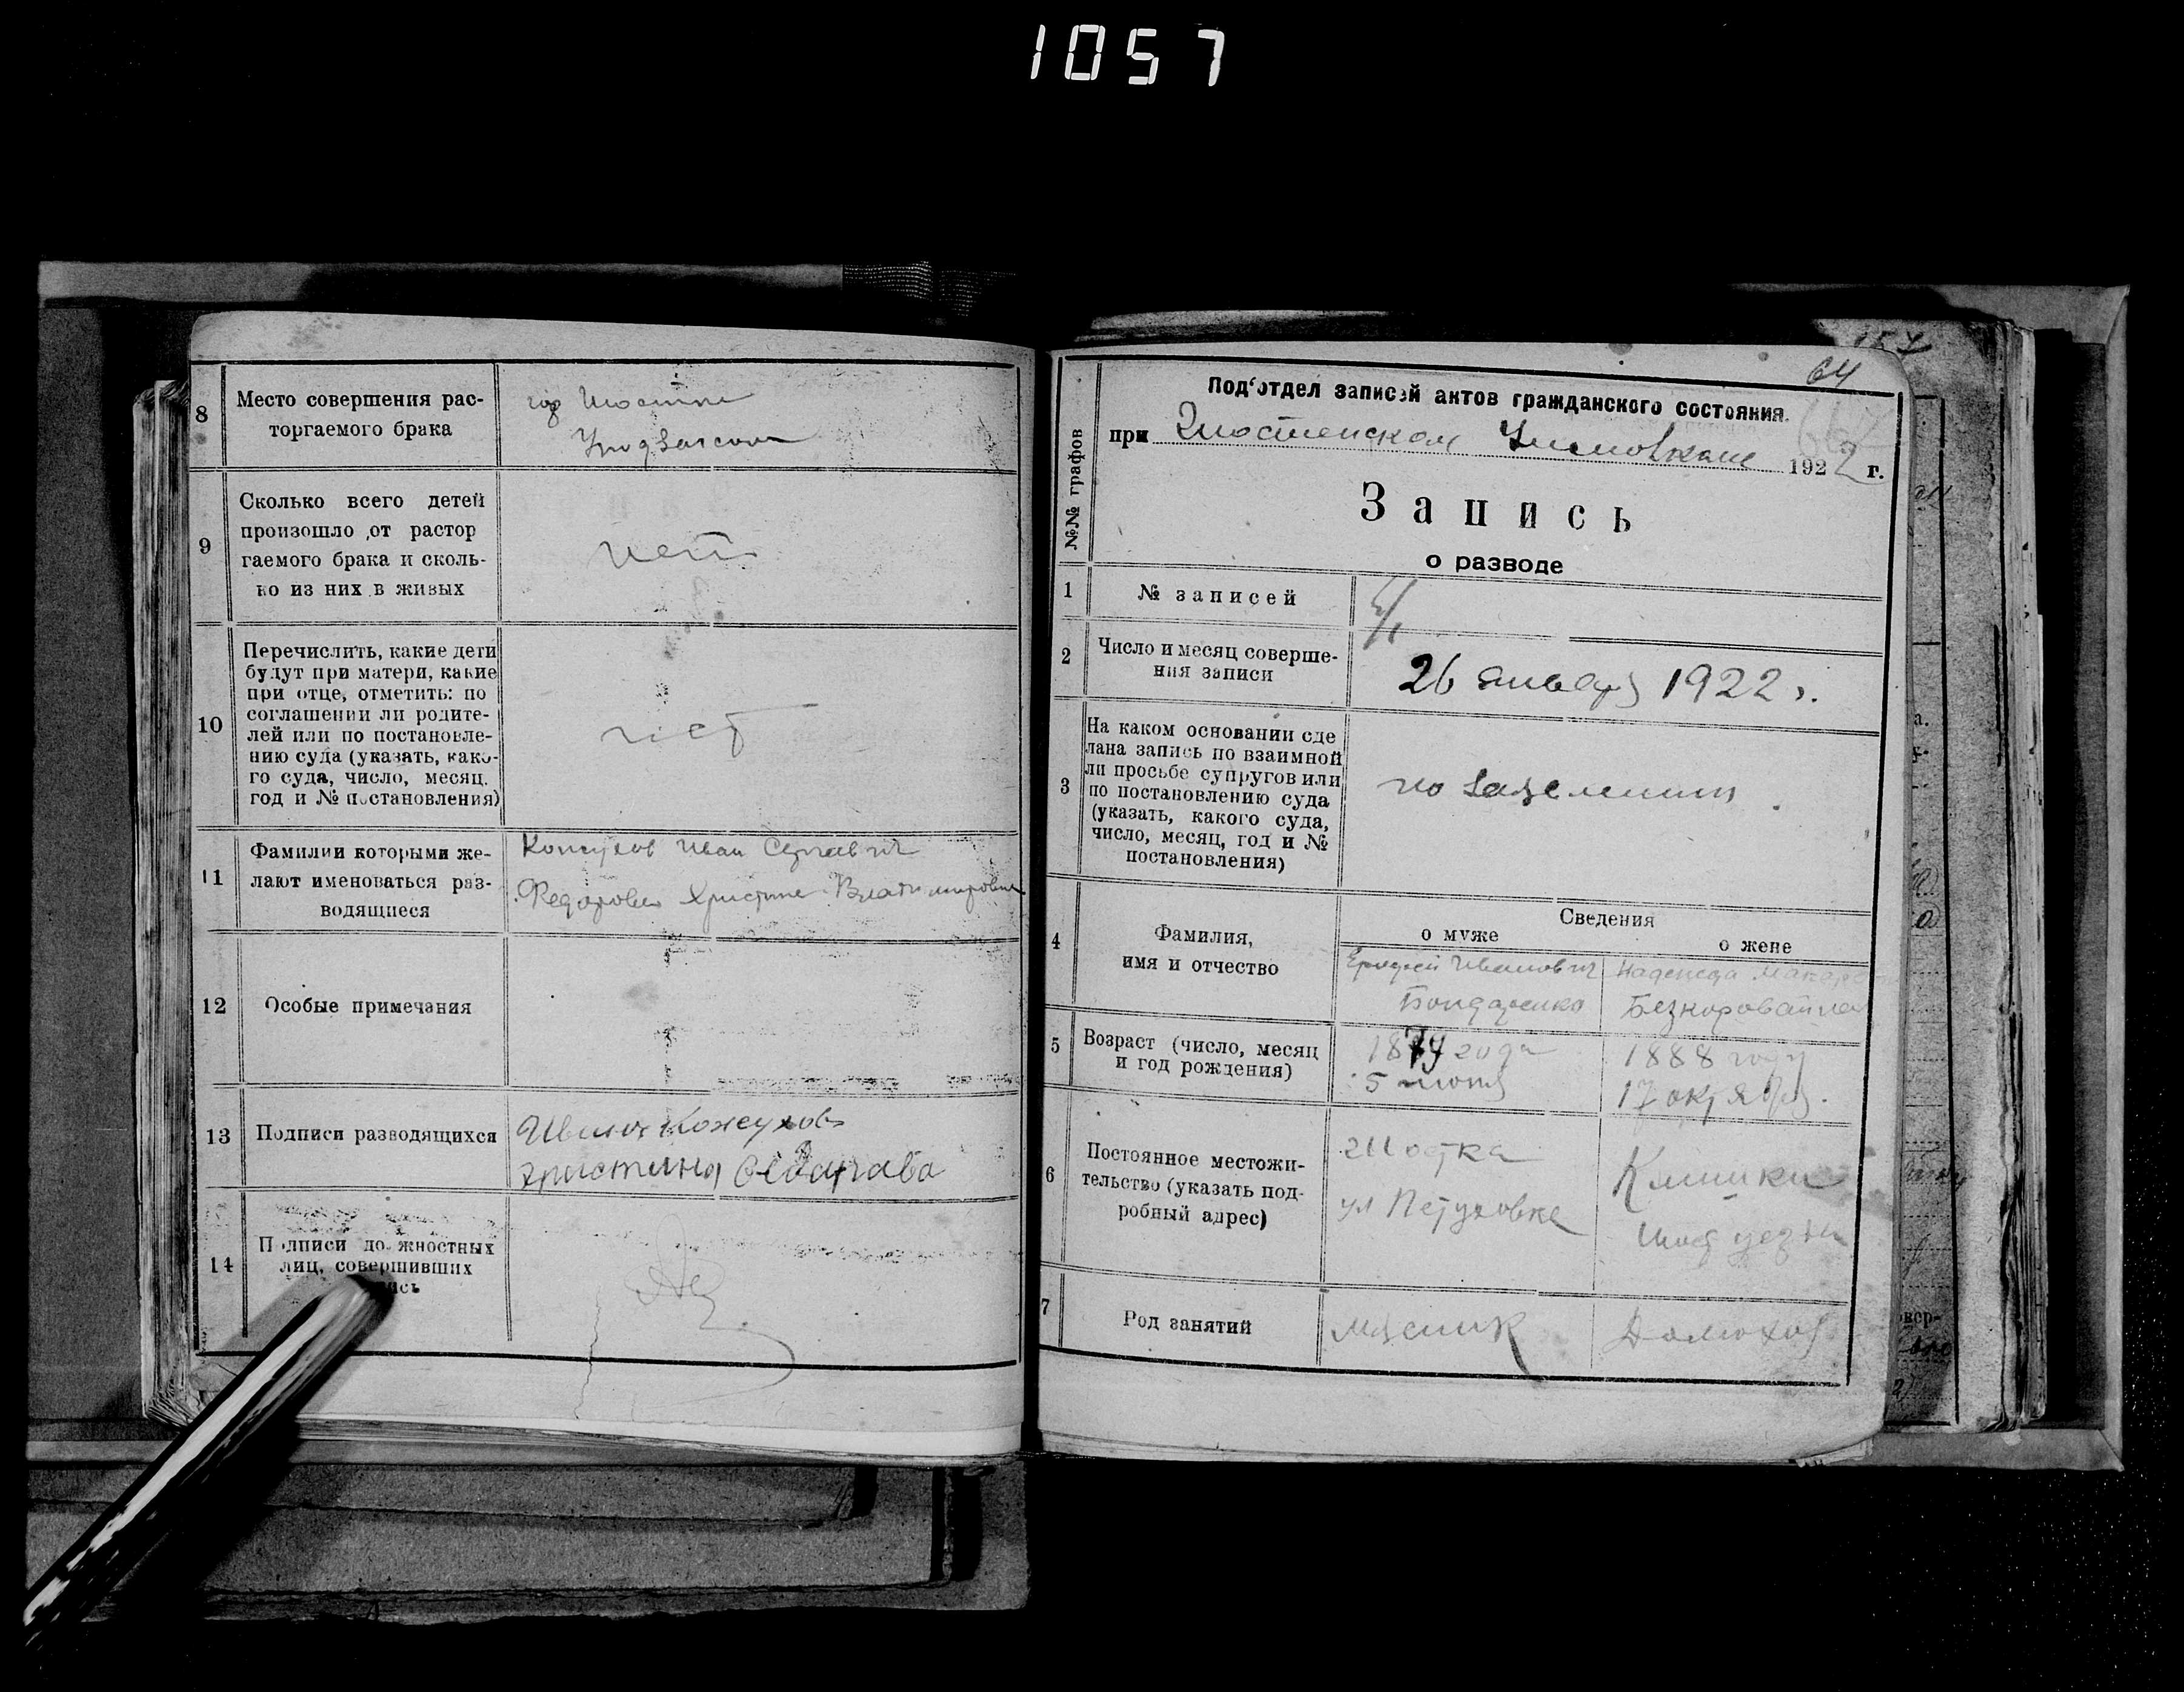 1057
8
Место совершения рас-
торгаемого брака
гор Шостка
9
Сколько всего детей
произошло от растор
гаемого брака и сколь-
ко из них в живых
нет
10
Перечислить, какие дети
будут при матери, какие
при отце, отметить: по
соглашении ли родите-
лей или по постановле-
нию суда (указать, како-
го суда, число, месяц.
год и № постановления)
нет
11
Фамилии которыми же-
лают именоваться раз-
водящиеся
Кожухов Иван Сергеевич
Федорова Христина Владимировна
12
Особые примечания
13
Подписи разводящихся
Иван Кожухов
Христина
14
Подписи должностных
лиц, совершивших
64
Под'отдел записей актов гражданского состояния.
при Шостенском 1922 г.
№№ графов
Запись
о разводе
1
№ записей
2
Число и месяц соверше-
ния записи
26 января 1922 г.
3
На каком основании сде
лана запись по взаимной
ли просьбе супругов или
по постановлению суда
(указать, какого суда,
число, месяц, год и №
постановления)
по заявлению
4
Фамилия,
имя и отчество
Сведения
о муже
о жене
Иванович
Бондаренко
Надежда
Безкоровайная
5
Возраст (число, месяц
и год рождения)
1879 года
5
1888 году
17 октября.
6
Постоянное местожи-
тельство (указать под-
робный адрес)
г Шостка
ул Петуховка
Клишки
Шост уезда
7
Род занятий
мясник
Домохоз